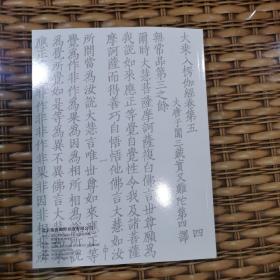 大乘入楞伽經卷第五
四
大唐于闐三藏實叉難陀第四譯
無常品第三之餘
爾時大慧菩薩摩訶薩復白佛言世尊願為
我說如來應正等覺自覺性令我及諸菩薩
摩訶薩而得善巧自悟悟他佛言大慧如汝
所問當為汝說大慧言唯世尊如來應正等
覺為作非作為果為因為相所相為說所說
為覺所覺如是等為異不異佛言大慧如來
應正等覺非作非非作非果非因非相